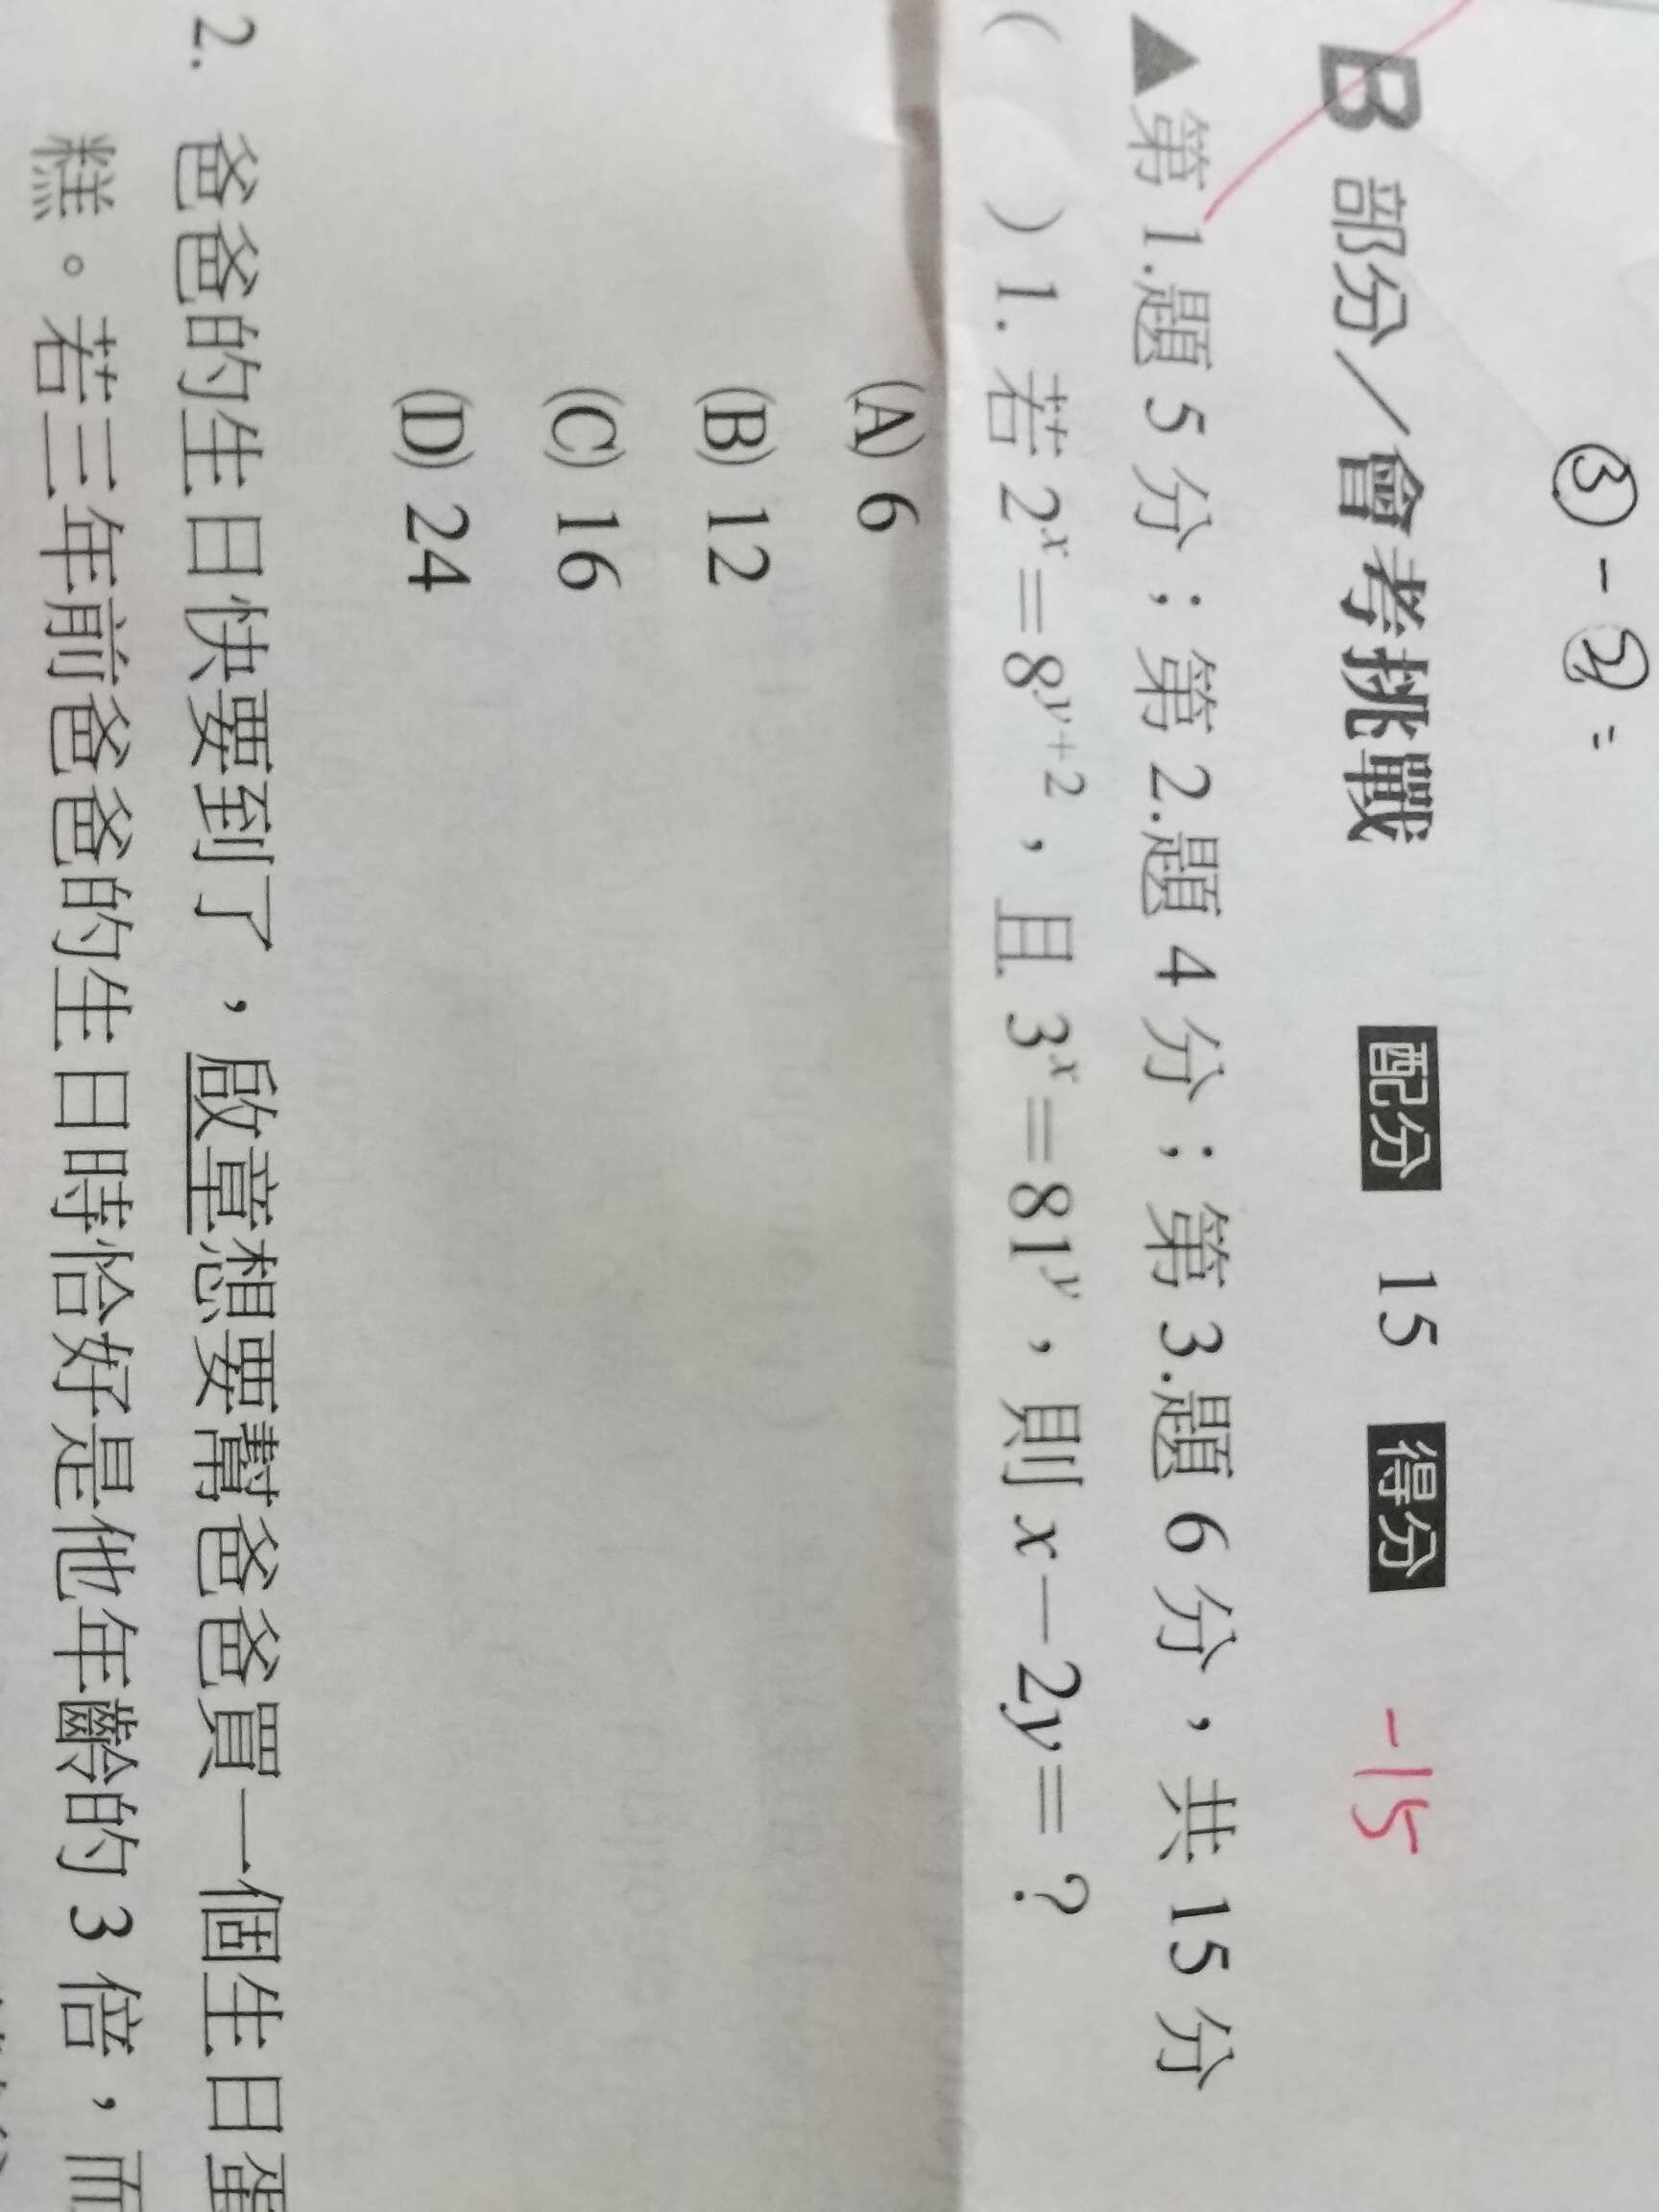 ③-②=
B 部分/會考挑戰 配分 15 得分 -15
▲第1.題5分；第2.題4分；第3.題6分，共15分
( ) 1. 若 2ˣ=8ʸ⁺²，且 3ˣ=81ʸ，則 x－2y=？
(A) 6
(B) 12
(C) 16
(D) 24
2. 爸爸的生日快要到了，啟章想要幫爸爸買一個生日蛋
糕。若三年前爸爸的生日時恰好是他年齡的3倍，而